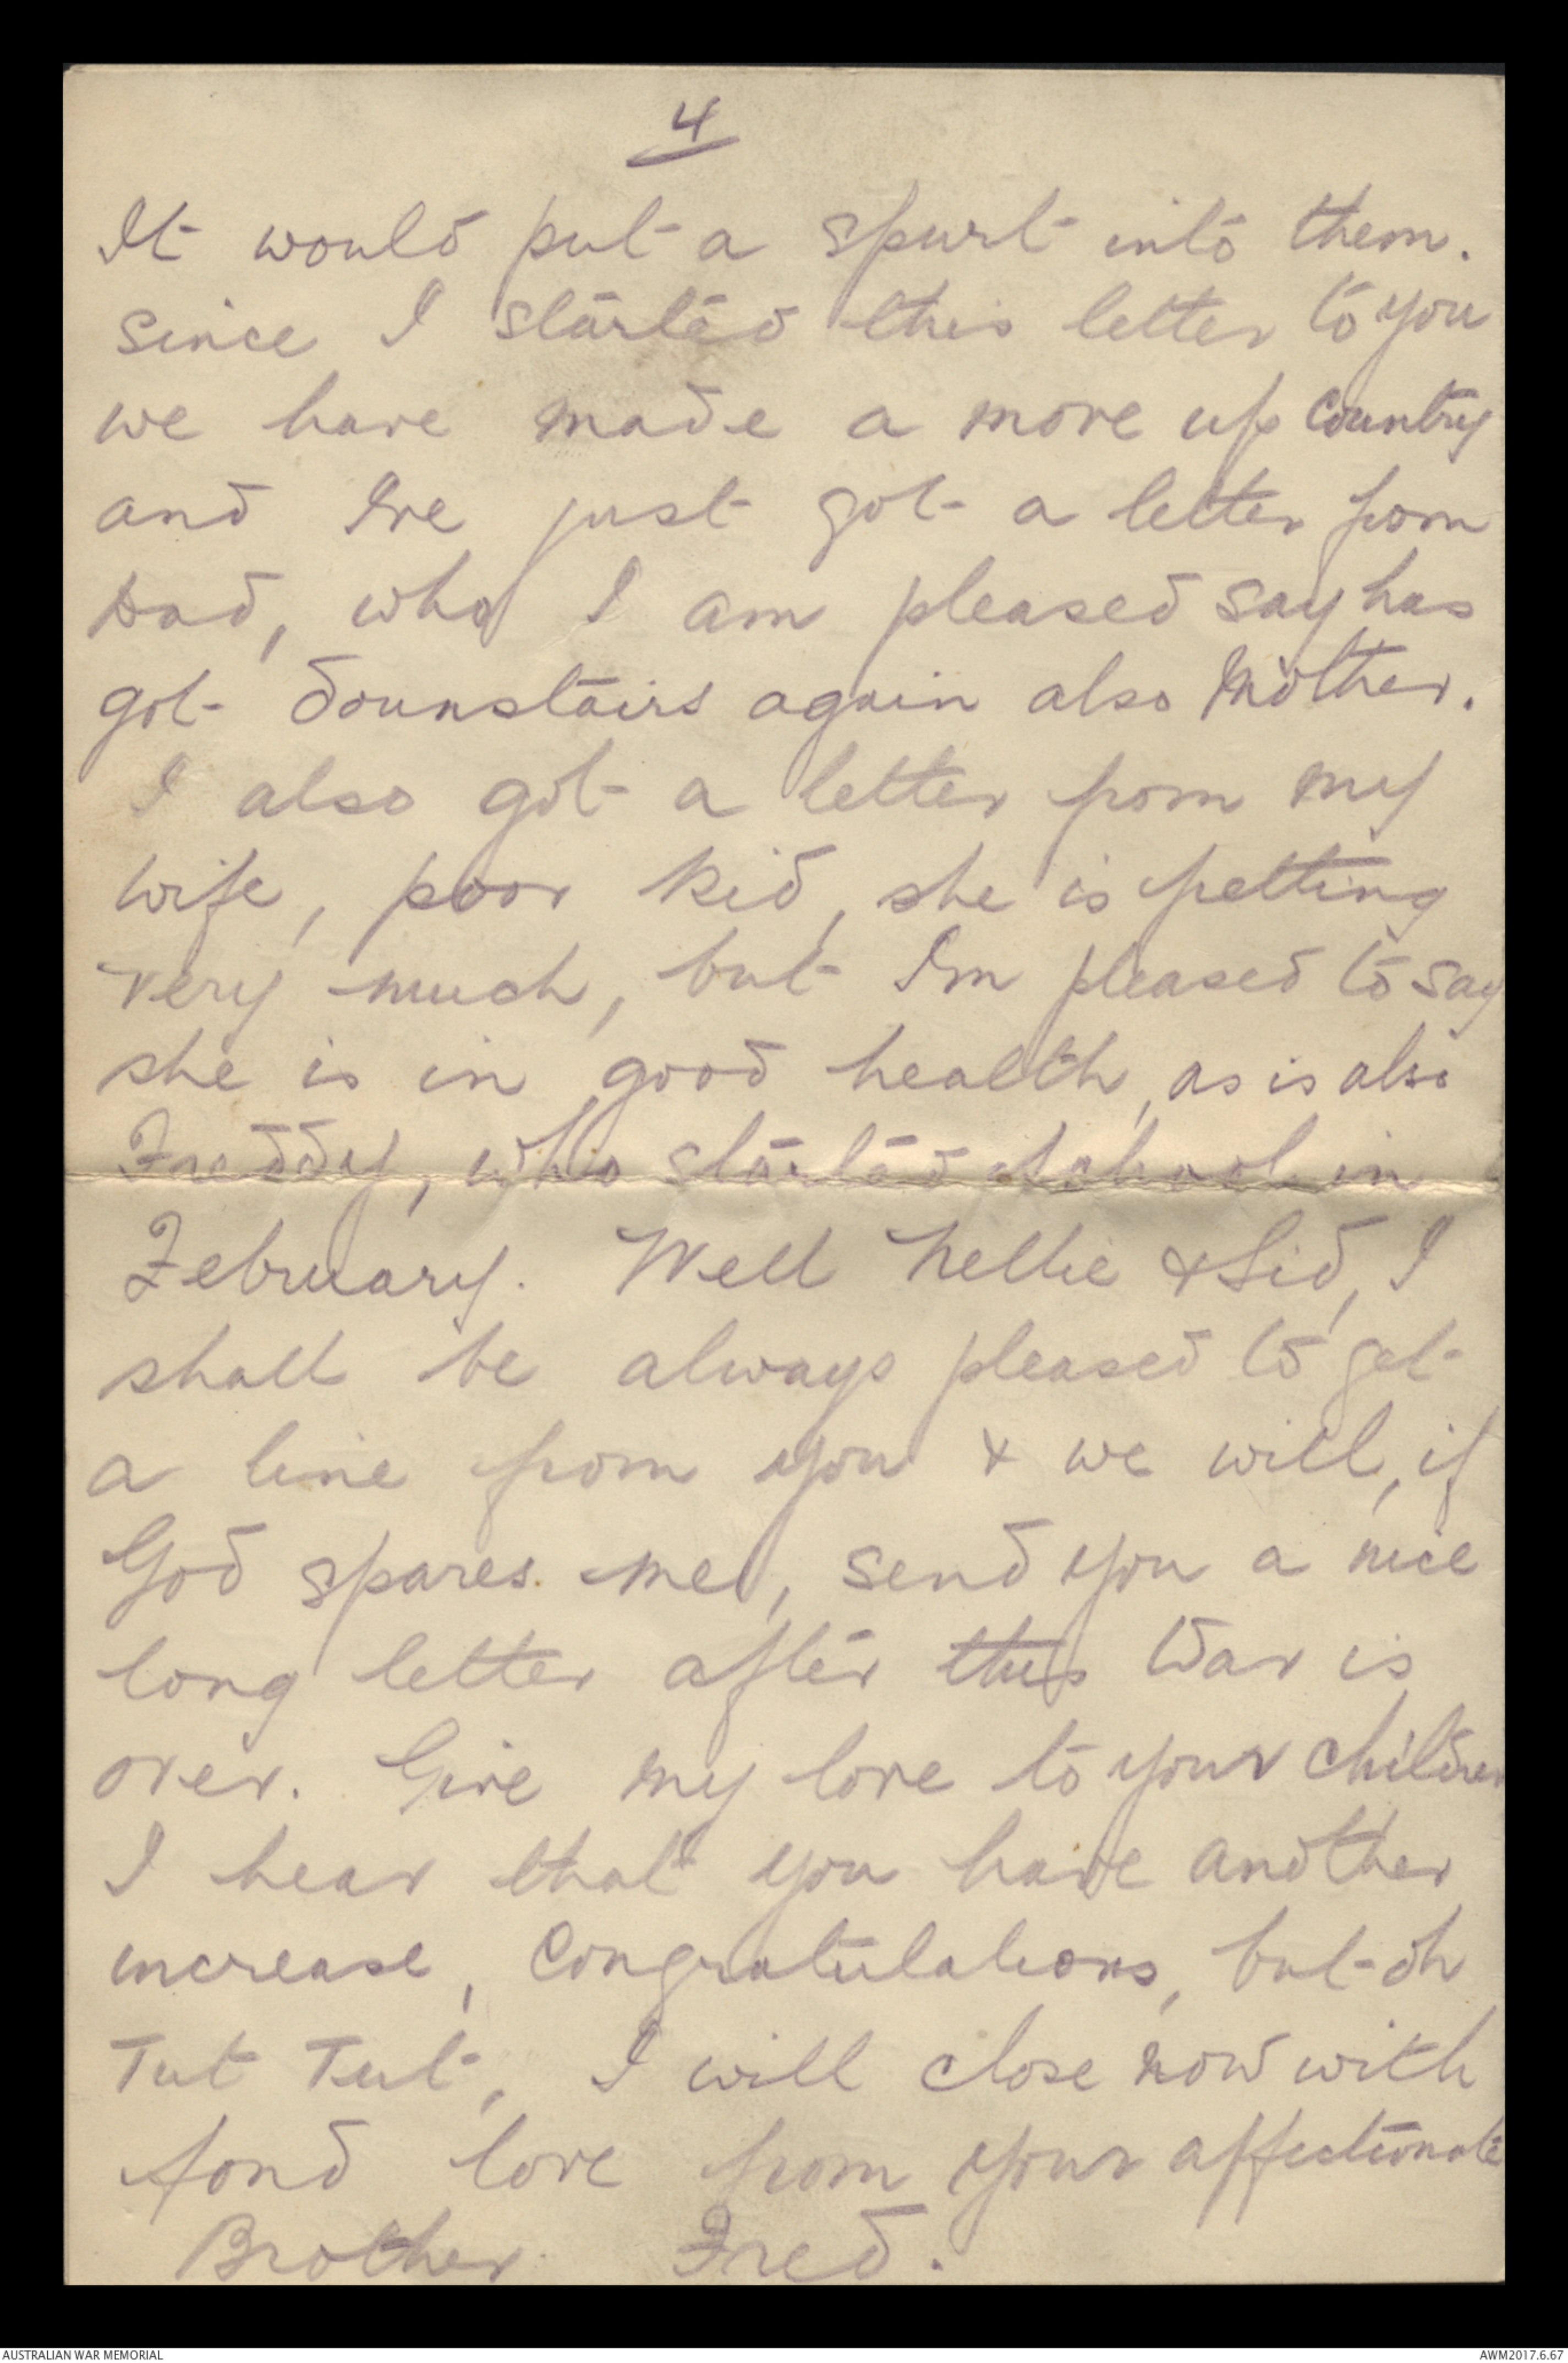 4
It would put a spurt into them.
since I started this letter to you
we have made a move up Country
and Ive just got a letter from
Dad, who I am pleased say has
got downstairs again also Mother.
I also got a letter from my
wife, poor kid, she is fretting
very much, but Im pleased to say
she is in good health, as is also
Freddy, who started school in
February. Well Nellie & Sid, I
shall be always pleased to get
a line from you & we will, if
God spares me, send you a nice
long letter after this War is
over. Give my love to your children
I hear that you have another
increase, Congratulations, but oh
Tut Tut, I will close now with
fond love from your affectionate
Brother Fred.
AUSTRALIAN WAR MEMORIAL
AWM2017.6.67